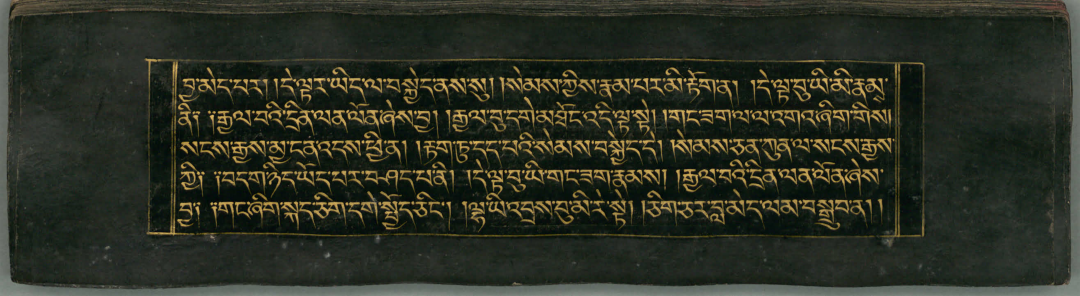 བྱ་མེད་པར། །དེ་ལྟར་ཡིད་ལ་བསྐྱེད་ནས་སུ། །སེམས་ཀྱིས་རྣམ་པར་མི་རྟོག་ན། །དེ་ལྟ་བུ་ཡི་མི་རྣམས་
ནི༑ ༑རྒྱལ་བའི་དྲིན་ལན་ལོན་ཞེས་བྱ། །རྒྱལ་བུ་དགེ་མཐོང་འདི་ལྟ་སྟེ། །གང་ཟག་ལ་ལ་འགའ་ཞིག་གིས།
སངས་རྒྱས་མྱ་ངན་འདས་ཕྱི་ན། །རྟག་ཏུ་དད་པའི་སེམས་བསྐྱེད་དེ། །སེམས་ཅན་ཀུན་ལ་སངས་རྒྱས་
ཀྱི༑ ༑བདག་ཉིད་ཡོད་པར་བཤད་པ་ནི། །དེ་ལྟ་བུ་ཡི་གང་ཟག་རྣམས། །རྒྱལ་བའི་དྲིན་ལན་ལོན་ཞེས་
བྱ༑ ༑གང་ཞིག་སྐད་ཅིག་དགེ་སྤྱོད་ཅིང་། །ལྷ་ཡི་འབྲས་བུ་མི་རེ་སྟེ། །ཅིག་ཅར་བླ་མེད་ལམ་བསྒྲུབ་ན། །